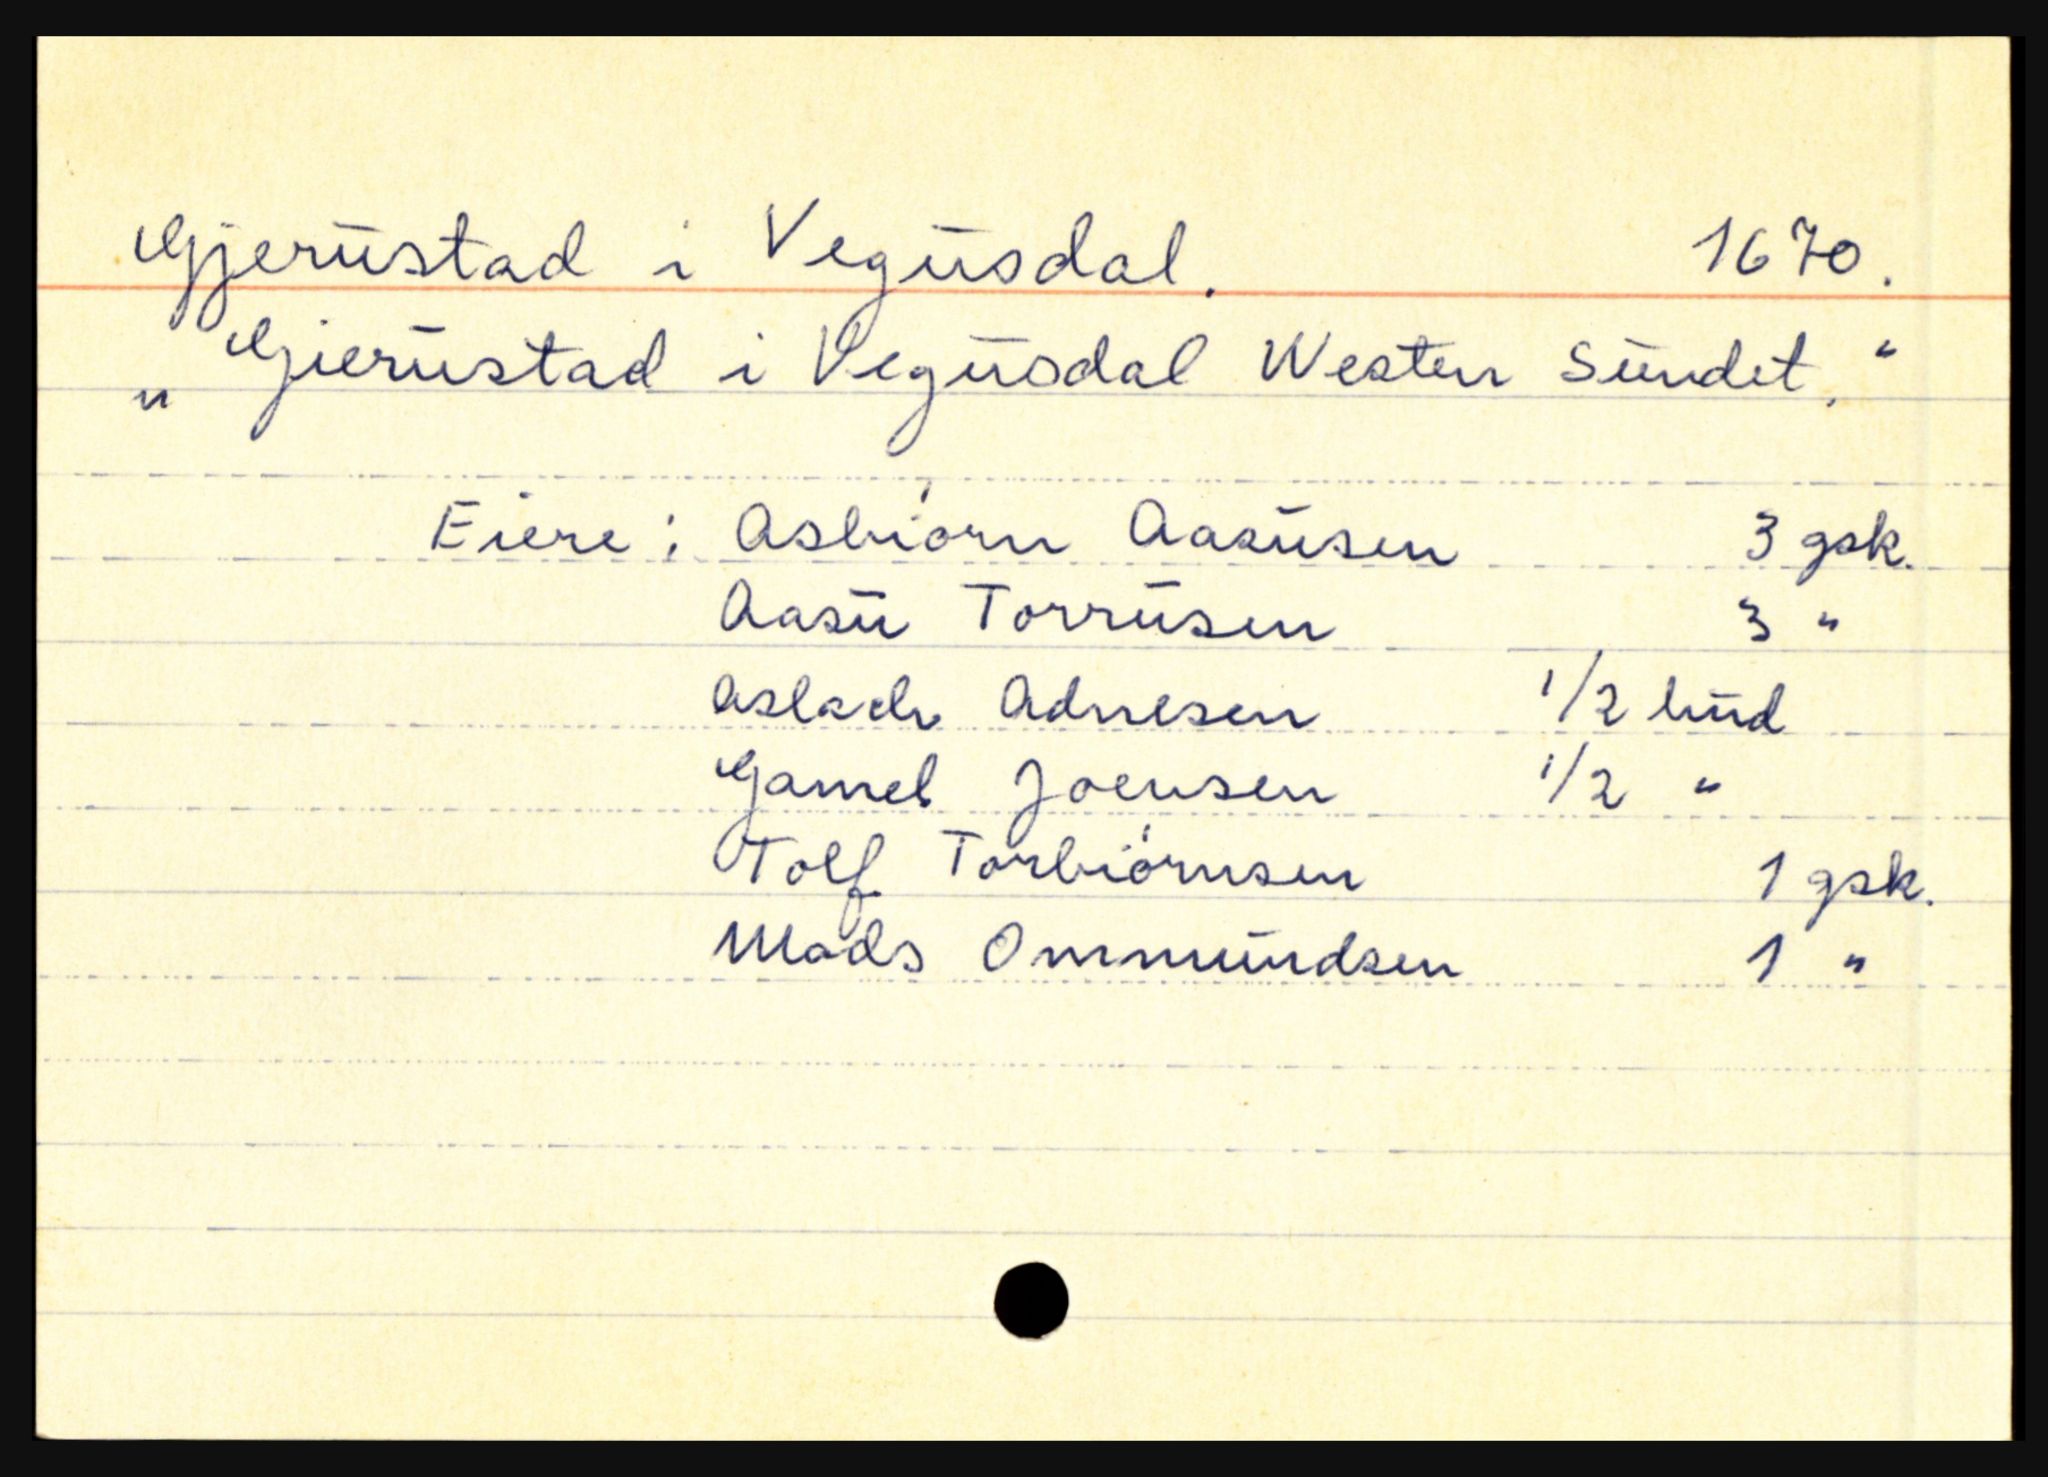 Gjerustad i Vegusdal. 1670.
„Gierustad i Vegusdal Westen Sundet."
Eiere: Asbiórn Aasusen 3 gsk.
Aasu Torrusen 3 "
Aslach Adnesen 1/2 hud
Gamel Joensen 1/2 "
Tolf Torbiórnsen 1 gsk.
Mads Ommundsen 1 "